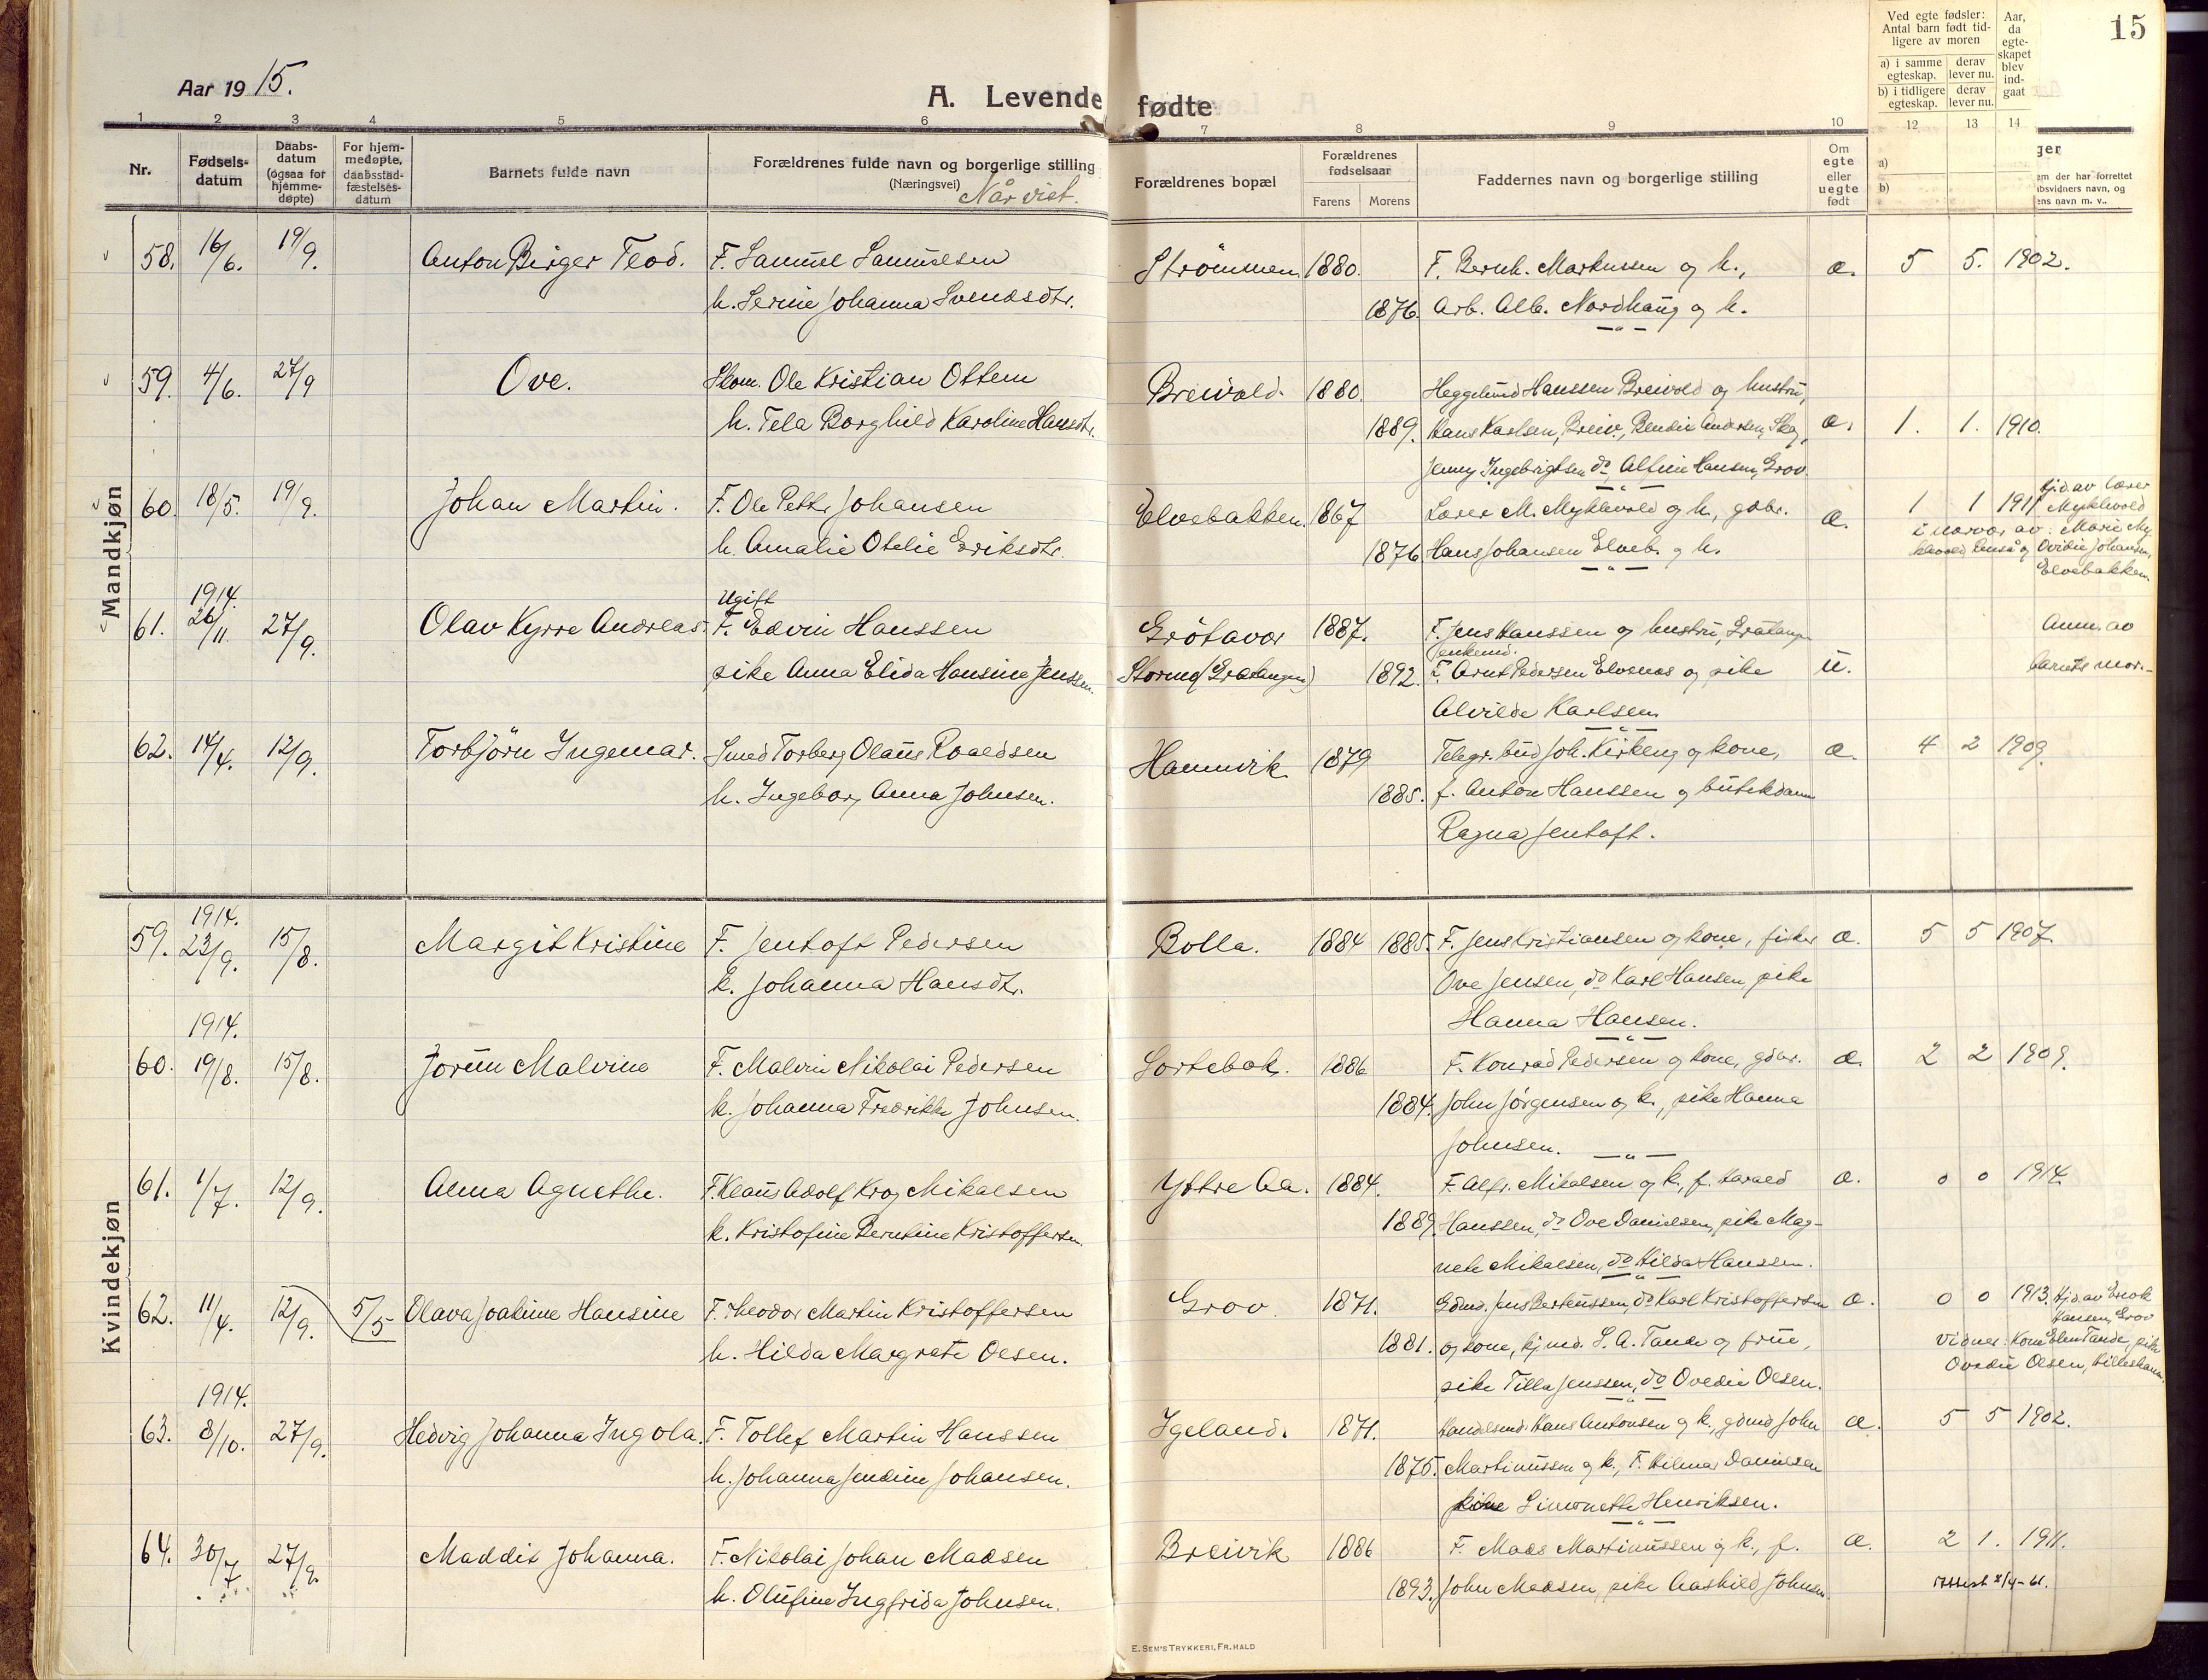 15
Aar 1915.
A. Levende fødte
Ved egte fødsler: Antal barn født tidligere av moren
a) i samme egteskap. derav lever nu.
b) i tidligere egteskap. derav lever nu.
Aar, da egteskapet blev indgaat
1 2 3 4 5 6 7 8 9 10 12 13 14
Nr.
Fødsels-datum
Daabs-datum (ogsaa for hjemme-døpte)
For hjem-medøpte, daabsstad-fæstelses-datum
Barnets fulde navn
Forældrenes fulde navn og borgerlige stilling
(Næringsvei) Når viet.
Forældrenes bopæl
Forældrenes fødselsaar
Farens Morens
Faddernes navn og borgerlige stilling
Om egte eller uegte født
a)
b)
ger
em der har forrettet
absvidners navn, og
ens navn m. v..
Mandkjøn
58. 16/6. 19/9. Anton Birger Teod. F. Samuel Samuelsen Strømmen. 1880. F. Bernh. Markussen og h., æ. 5 5. 1902.
h. Serine Johanna Svendsdtr. 1876. Arb. Alb. Nordhaug og h.
59. 4/6. 27/9 Ove. Ole Kristian Ottem Breivold. 1880. Heggelund Hanssen Breivold og hustru,
h. Tela Borghild Karoline Hansdtr. 1889. Hans Karlsen, Breiv., Andersen, Skog, æ. 1. 1. 1910.
Jenny Ingebrigtsen do Altine Hansen, Grov.
60. 18/5. 19/9. Johan Martin. F. Ole Petter Johansen Elvebakken. 1867 Lærer M. Myklevold og h., gdbr. æ. 1 1 1911 Hjd. av lærer Myklevold
h. Amalie Otelie Eriksdtr. 1876 Hans Johansen Elveb. og h. i nærvær av: Marie Myklevold, Renså og Ovidie Johansen, Elvebakken.
1914. Ugift
61. 26/11. 27/9. Olav Kyrre Andreas. F. Edvin Hanssen Grötavær 1887. F. Jens Hanssen og hustru, Gratangen Anm. av
pike Anna Elida Hansine Jenssen. (Gratangen) 1892. F. Arnt Pedersen Elvenes og pike u. barnets mor.
Alvilde Karlsen
62. 14/4. 12/9. Torbjörn Ingemar. Smed Torberg Olaus Roaldsen Hamnvik 1879 Telegr.bud Joh. Kirkeng og kone, æ. 4 2 1909.
h. Ingeborg Anna Johnsen. 1885. f. Anton Hanssen og butikdame
Ragna Jentoft.
Kvindekjøn
1914.
59. 23/9. 15/8. Margit Kristine F. Jentoft Pedersen Bolla. 1884 1885. F. Jens Kristiansen og kone, fisker æ. 5 5 1907.
k. Johanna Hansdtr. Ove Jensen, do Karl Hansen, pike
Hanna Hansen.
1914.
60. 19/8. 15/8. Jorun Malvine F. Malvin Nikolai Pedersen Sortebæk. 1886 F. Konrad Pedersen og kone, gdbr. æ. 2 2 1909.
k. Johanna Fredrikke Johnsen. 1884. John Jørgensen og k., pike Hanna
Johnsen.
61. 1/7. 12/9. Alma Agnethe. F. Klaus Adolf Krog Mikalsen Ytre Aa. 1884. F. Alfr. Mikalsen og k., f. Harald æ. 0 0 1914.
k. Kristofine Berntine Kristoffersen. 1889. Hanssen, do Ove Danielsen, pike Mag-
nete Mikalsen, do Hilda Hanssen.
62. 11/4. 12/9. 5/5 Olava Joakime Hansine F. Theodor Martin Kristoffersen Grov. 1871. Gdmd. Jens Berteussen, do Karl Kristoffersen æ. 0 0 1913. Hjd. av Enok Hansen, Grov
h. Hilda Margrete Olsen. 1881. og kone, kjmd. S. A. Tande og frue, Vidner: Kone Elen Tande, pike
pike Tilla Jenssen, do Ovedie Olsen. Ovedie Olsen, Hilleshamn.
1914.
63. 8/10. 27/9. Hedvig Johanna Ingola. F. Tollef Martin Hanssen Igeland. 1871. Handelsmd. Hans Antonsen og k., gdmd John æ. 5 5 1902.
h. Johanna Jendine Johansen. 1875. Martinussen og k., F. Hilmar Danielsen
pike Simonette Henriksen.
64. 30/7 27/9. Maddis Johanna. F. Nikolai Johan Madsen Breivik 1886 F. Mads Martinussen og k., f. æ. 2 1. 1911.
h. Olufine Ingfrida Johnsen. 1893. John Madsen, pike Aashild Johnsen. Attest 8/4-61.
E. SEM'S TRYKKERI, FR. HALD